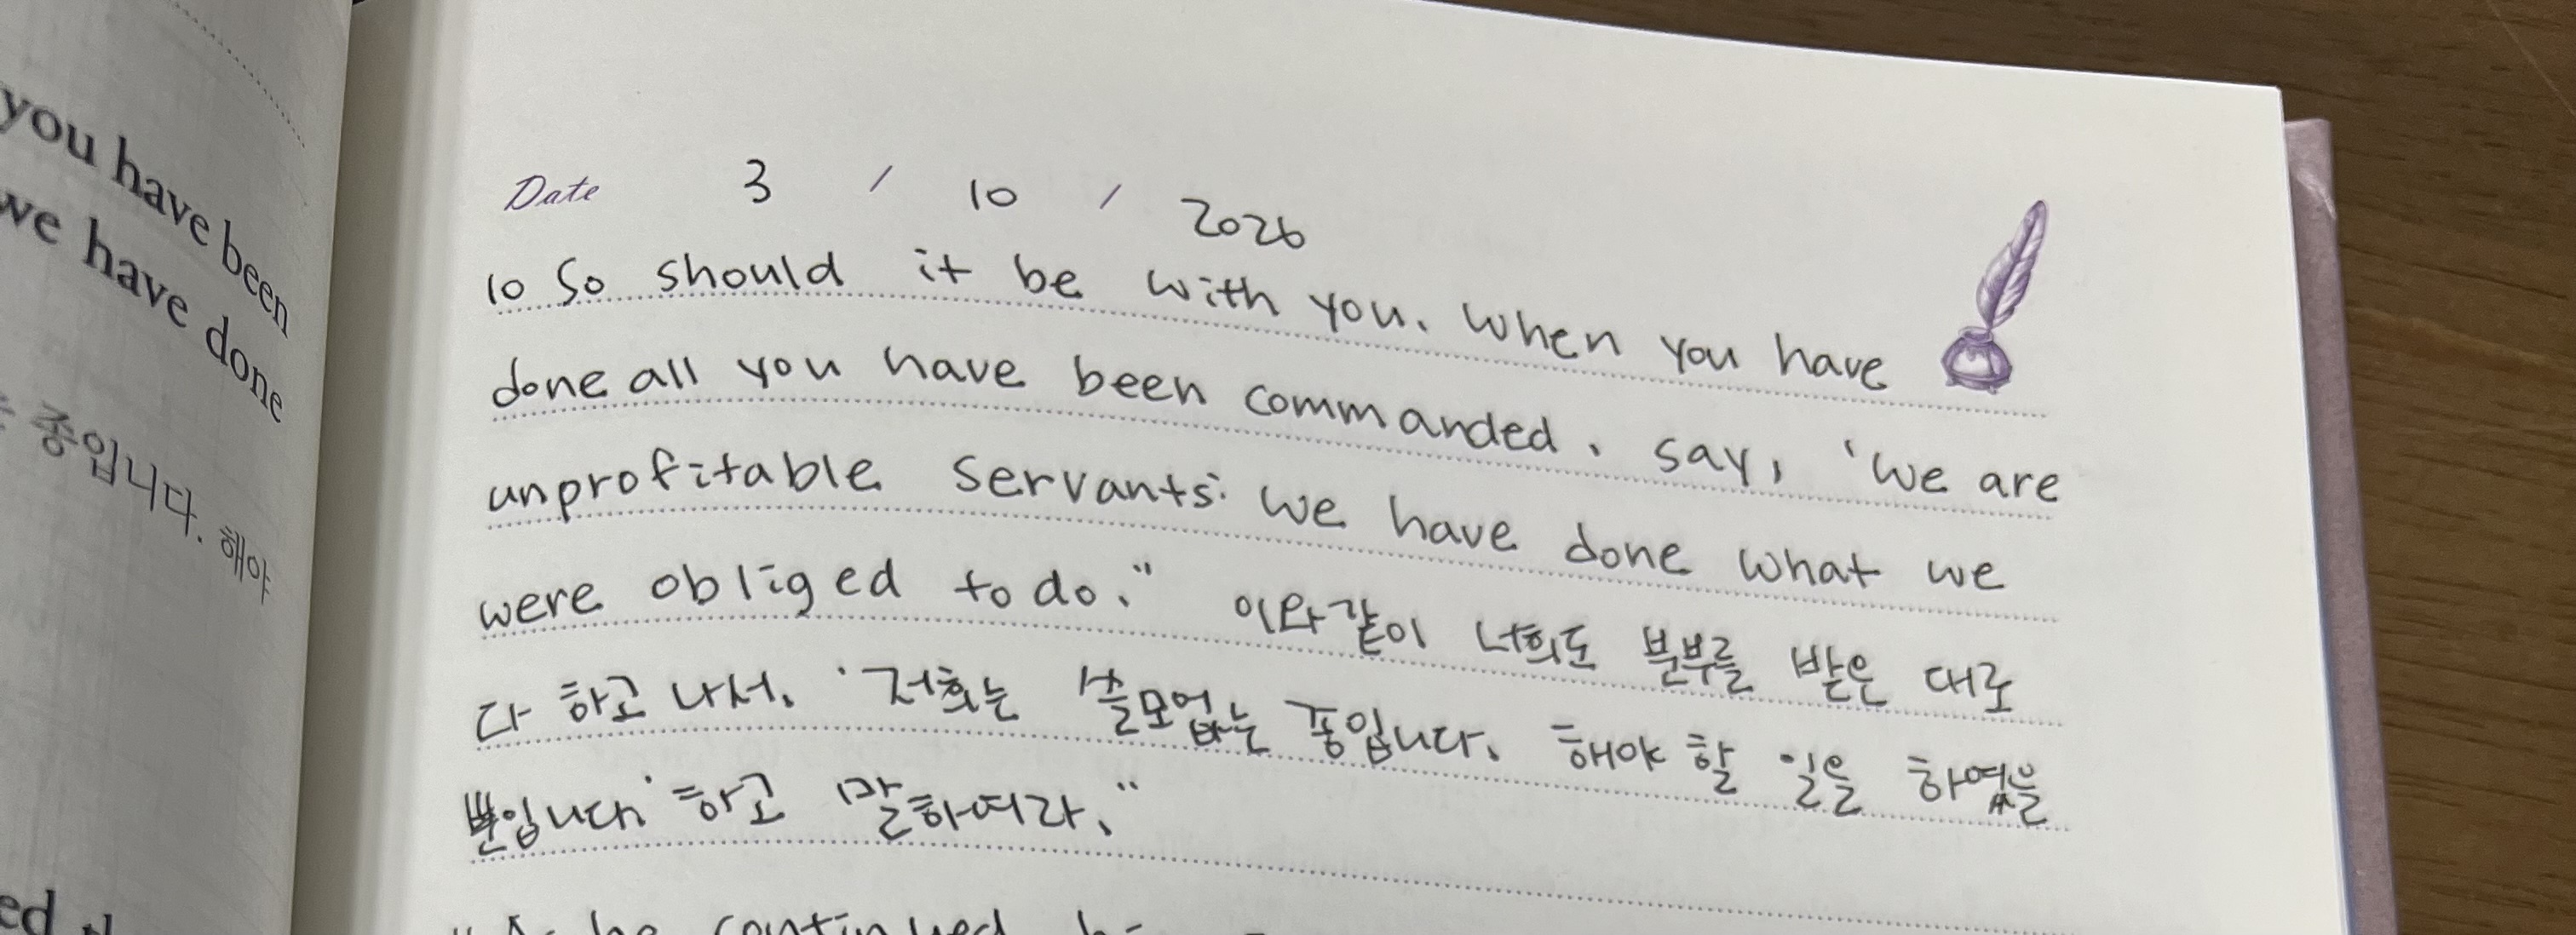 you have been
we have done
종입니다. 해야
Date 3 / 10 / 2026
10 So should it be with you. When you have
done all you have been commanded, say, 'We are
unprofitable servants: we have done what we
were obliged to do.'" 이와 같이 너희도 분부를 받은 대로
다 하고 나서, '저희는 쓸모없는 종입니다. 해야 할 일을 하였을
뿐입니다.' 하고 말하여라."
continued